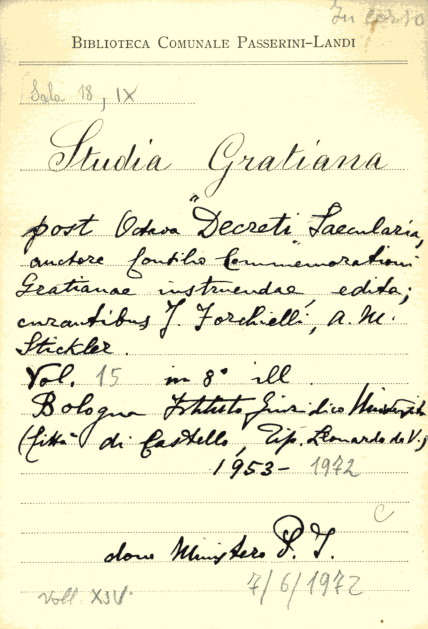 In corso
BIBLIOTECA COMUNALE PASSERINI-LANDI
Sala 18, IX
Studia Gratiana
post Octava "Decreti Saecularia,
auctore Consilio Commemorationi
Gratianae instruendae, edita;
curantibus J. Forchielli, A. M.
Stickler.
Vol. 15 in 8° ill.
Bologna Istituto Giuridico
(Città di Castello, Tip. Leonardo da V.,
1953- 1972
C
dono Ministero P. I.
7/6/1972
Voll. XIV.